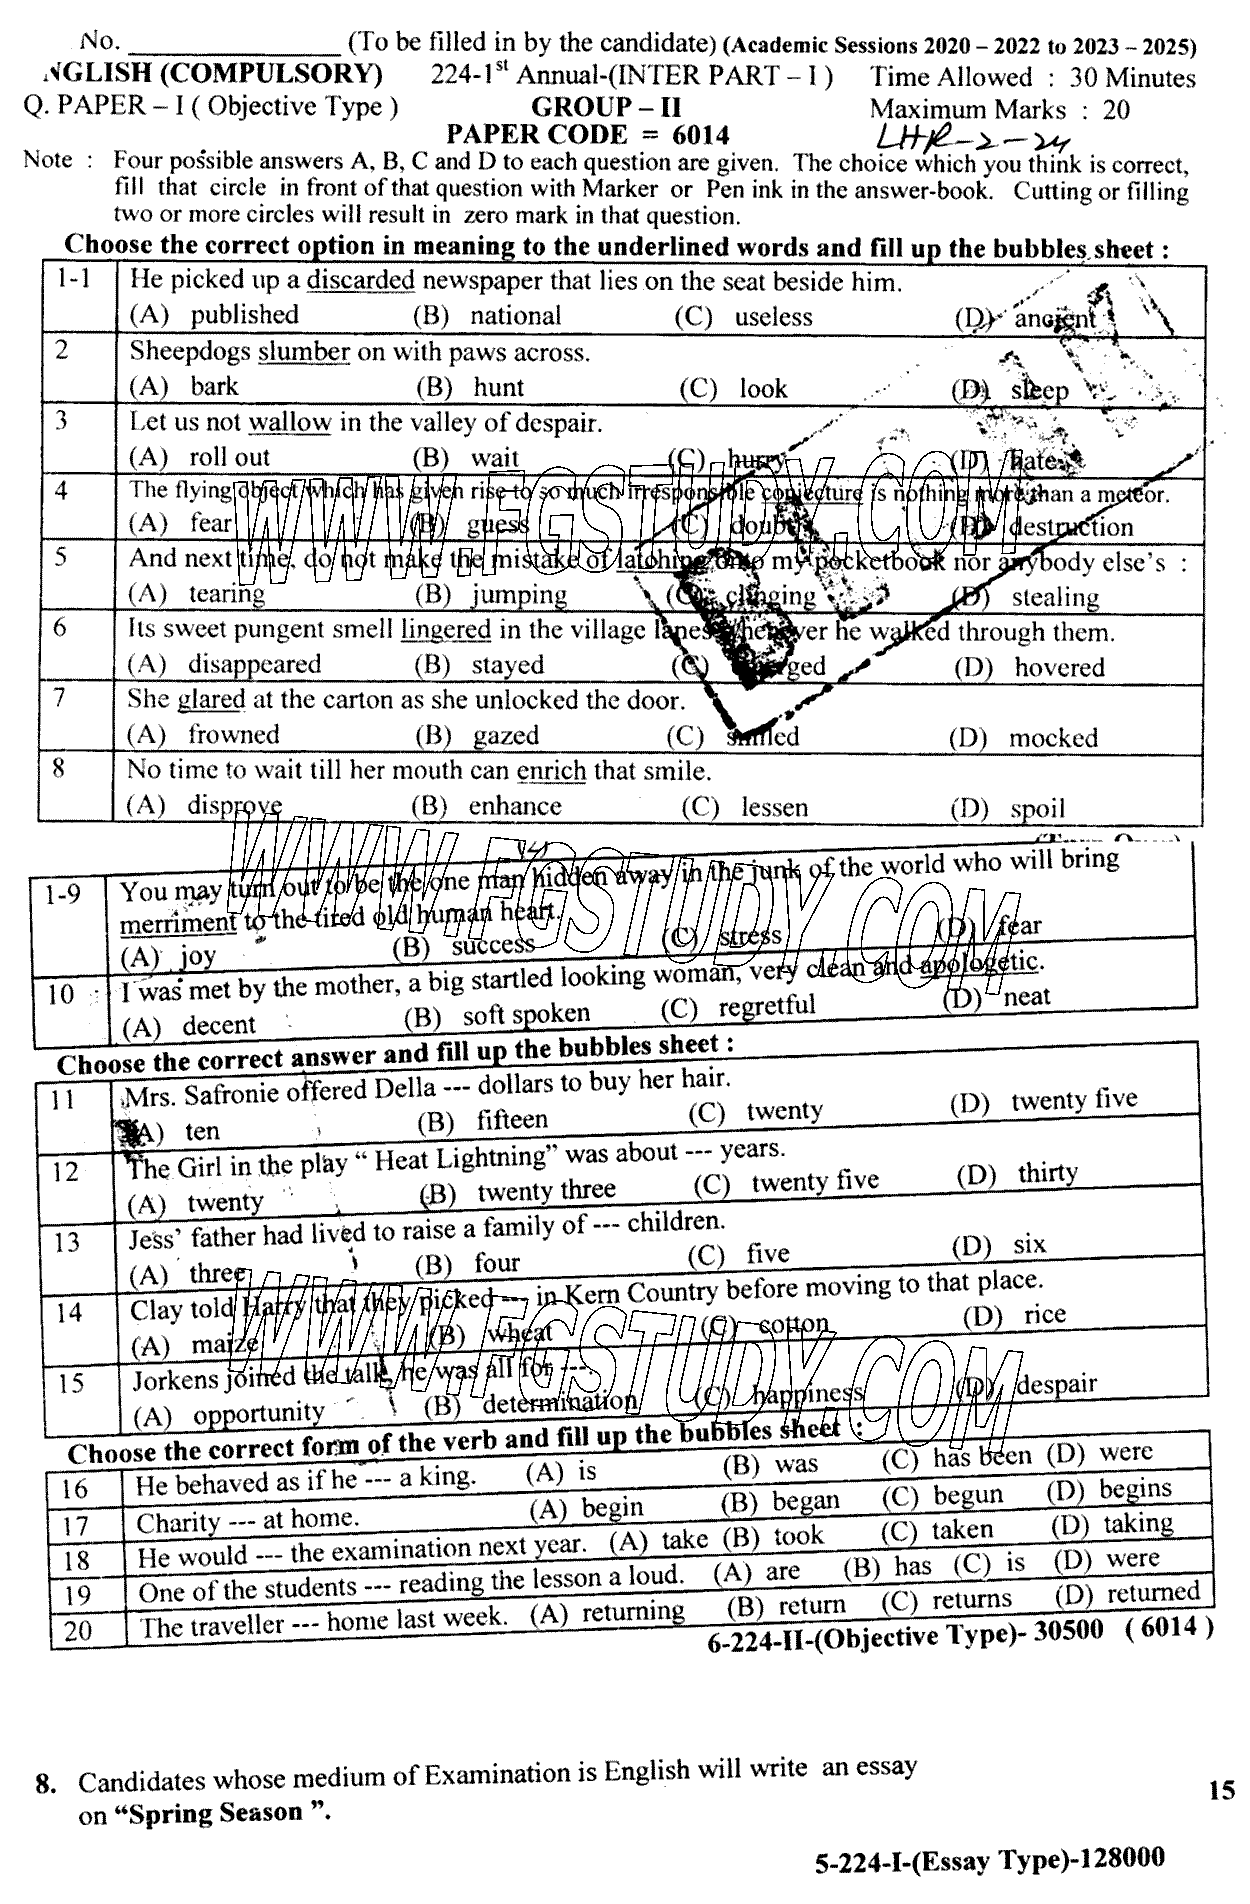 No. _______________ (To be filled in by the candidate) (Academic Sessions 2020 – 2022 to 2023 – 2025)
NGLISH (COMPULSORY) 224-1st Annual-(INTER PART – I ) Time Allowed : 30 Minutes
Q. PAPER – I ( Objective Type ) GROUP – II Maximum Marks : 20
PAPER CODE = 6014 LHR-2-24
Note : Four possible answers A, B, C and D to each question are given. The choice which you think is correct,
fill that circle in front of that question with Marker or Pen ink in the answer-book. Cutting or filling
two or more circles will result in zero mark in that question.
Choose the correct option in meaning to the underlined words and fill up the bubbles sheet :
1-1 He picked up a discarded newspaper that lies on the seat beside him.
(A) published (B) national (C) useless (D) ancient
2 Sheepdogs slumber on with paws across.
(A) bark (B) hunt (C) look (D) sleep
3 Let us not wallow in the valley of despair.
(A) roll out (B) wait (C) hurry (D) hate
4 The flying object which has given rise to so much irresponsible conjecture is nothing more than a meteor.
(A) fear (B) guess (C) doubt (D) destruction
5 And next time, do not make the mistake of latching onto my pocketbook nor anybody else's :
(A) tearing (B) jumping (C) clinging (D) stealing
6 Its sweet pungent smell lingered in the village lanes whenever he walked through them.
(A) disappeared (B) stayed (C) (D) hovered
7 She glared at the carton as she unlocked the door.
(A) frowned (B) gazed (C) smiled (D) mocked
8 No time to wait till her mouth can enrich that smile.
(A) disprove (B) enhance (C) lessen (D) spoil
1-9 You may turn out to be the one man hidden away in the junk of the world who will bring
merriment to the tired old human heart.
(A) joy (B) success (C) stress (D) fear
10 I was met by the mother, a big startled looking woman, very clean and apologetic.
(A) decent (B) soft spoken (C) regretful (D) neat
Choose the correct answer and fill up the bubbles sheet :
11 Mrs. Safronie offered Della --- dollars to buy her hair.
(A) ten (B) fifteen (C) twenty (D) twenty five
12 The Girl in the play “ Heat Lightning” was about --- years.
(A) twenty (B) twenty three (C) twenty five (D) thirty
13 Jess’ father had lived to raise a family of --- children.
(A) three (B) four (C) five (D) six
14 Clay told Harry that they picked --- in Kern Country before moving to that place.
(A) maize (B) wheat (C) cotton (D) rice
15 Jorkens joined the talk, he was all for ---
(A) opportunity (B) determination (C) happiness (D) despair
Choose the correct form of the verb and fill up the bubbles sheet :
16 He behaved as if he --- a king. (A) is (B) was (C) has been (D) were
17 Charity --- at home. (A) begin (B) began (C) begun (D) begins
18 He would --- the examination next year. (A) take (B) took (C) taken (D) taking
19 One of the students --- reading the lesson a loud. (A) are (B) has (C) is (D) were
20 The traveller --- home last week. (A) returning (B) return (C) returns (D) returned
6-224-II-(Objective Type)- 30500 ( 6014 )
8. Candidates whose medium of Examination is English will write an essay
on “Spring Season ”. 15
5-224-I-(Essay Type)-128000
WWW.FGSTUDY.COM
WWW.FGSTUDY.COM
WWW.FGSTUDY.COM